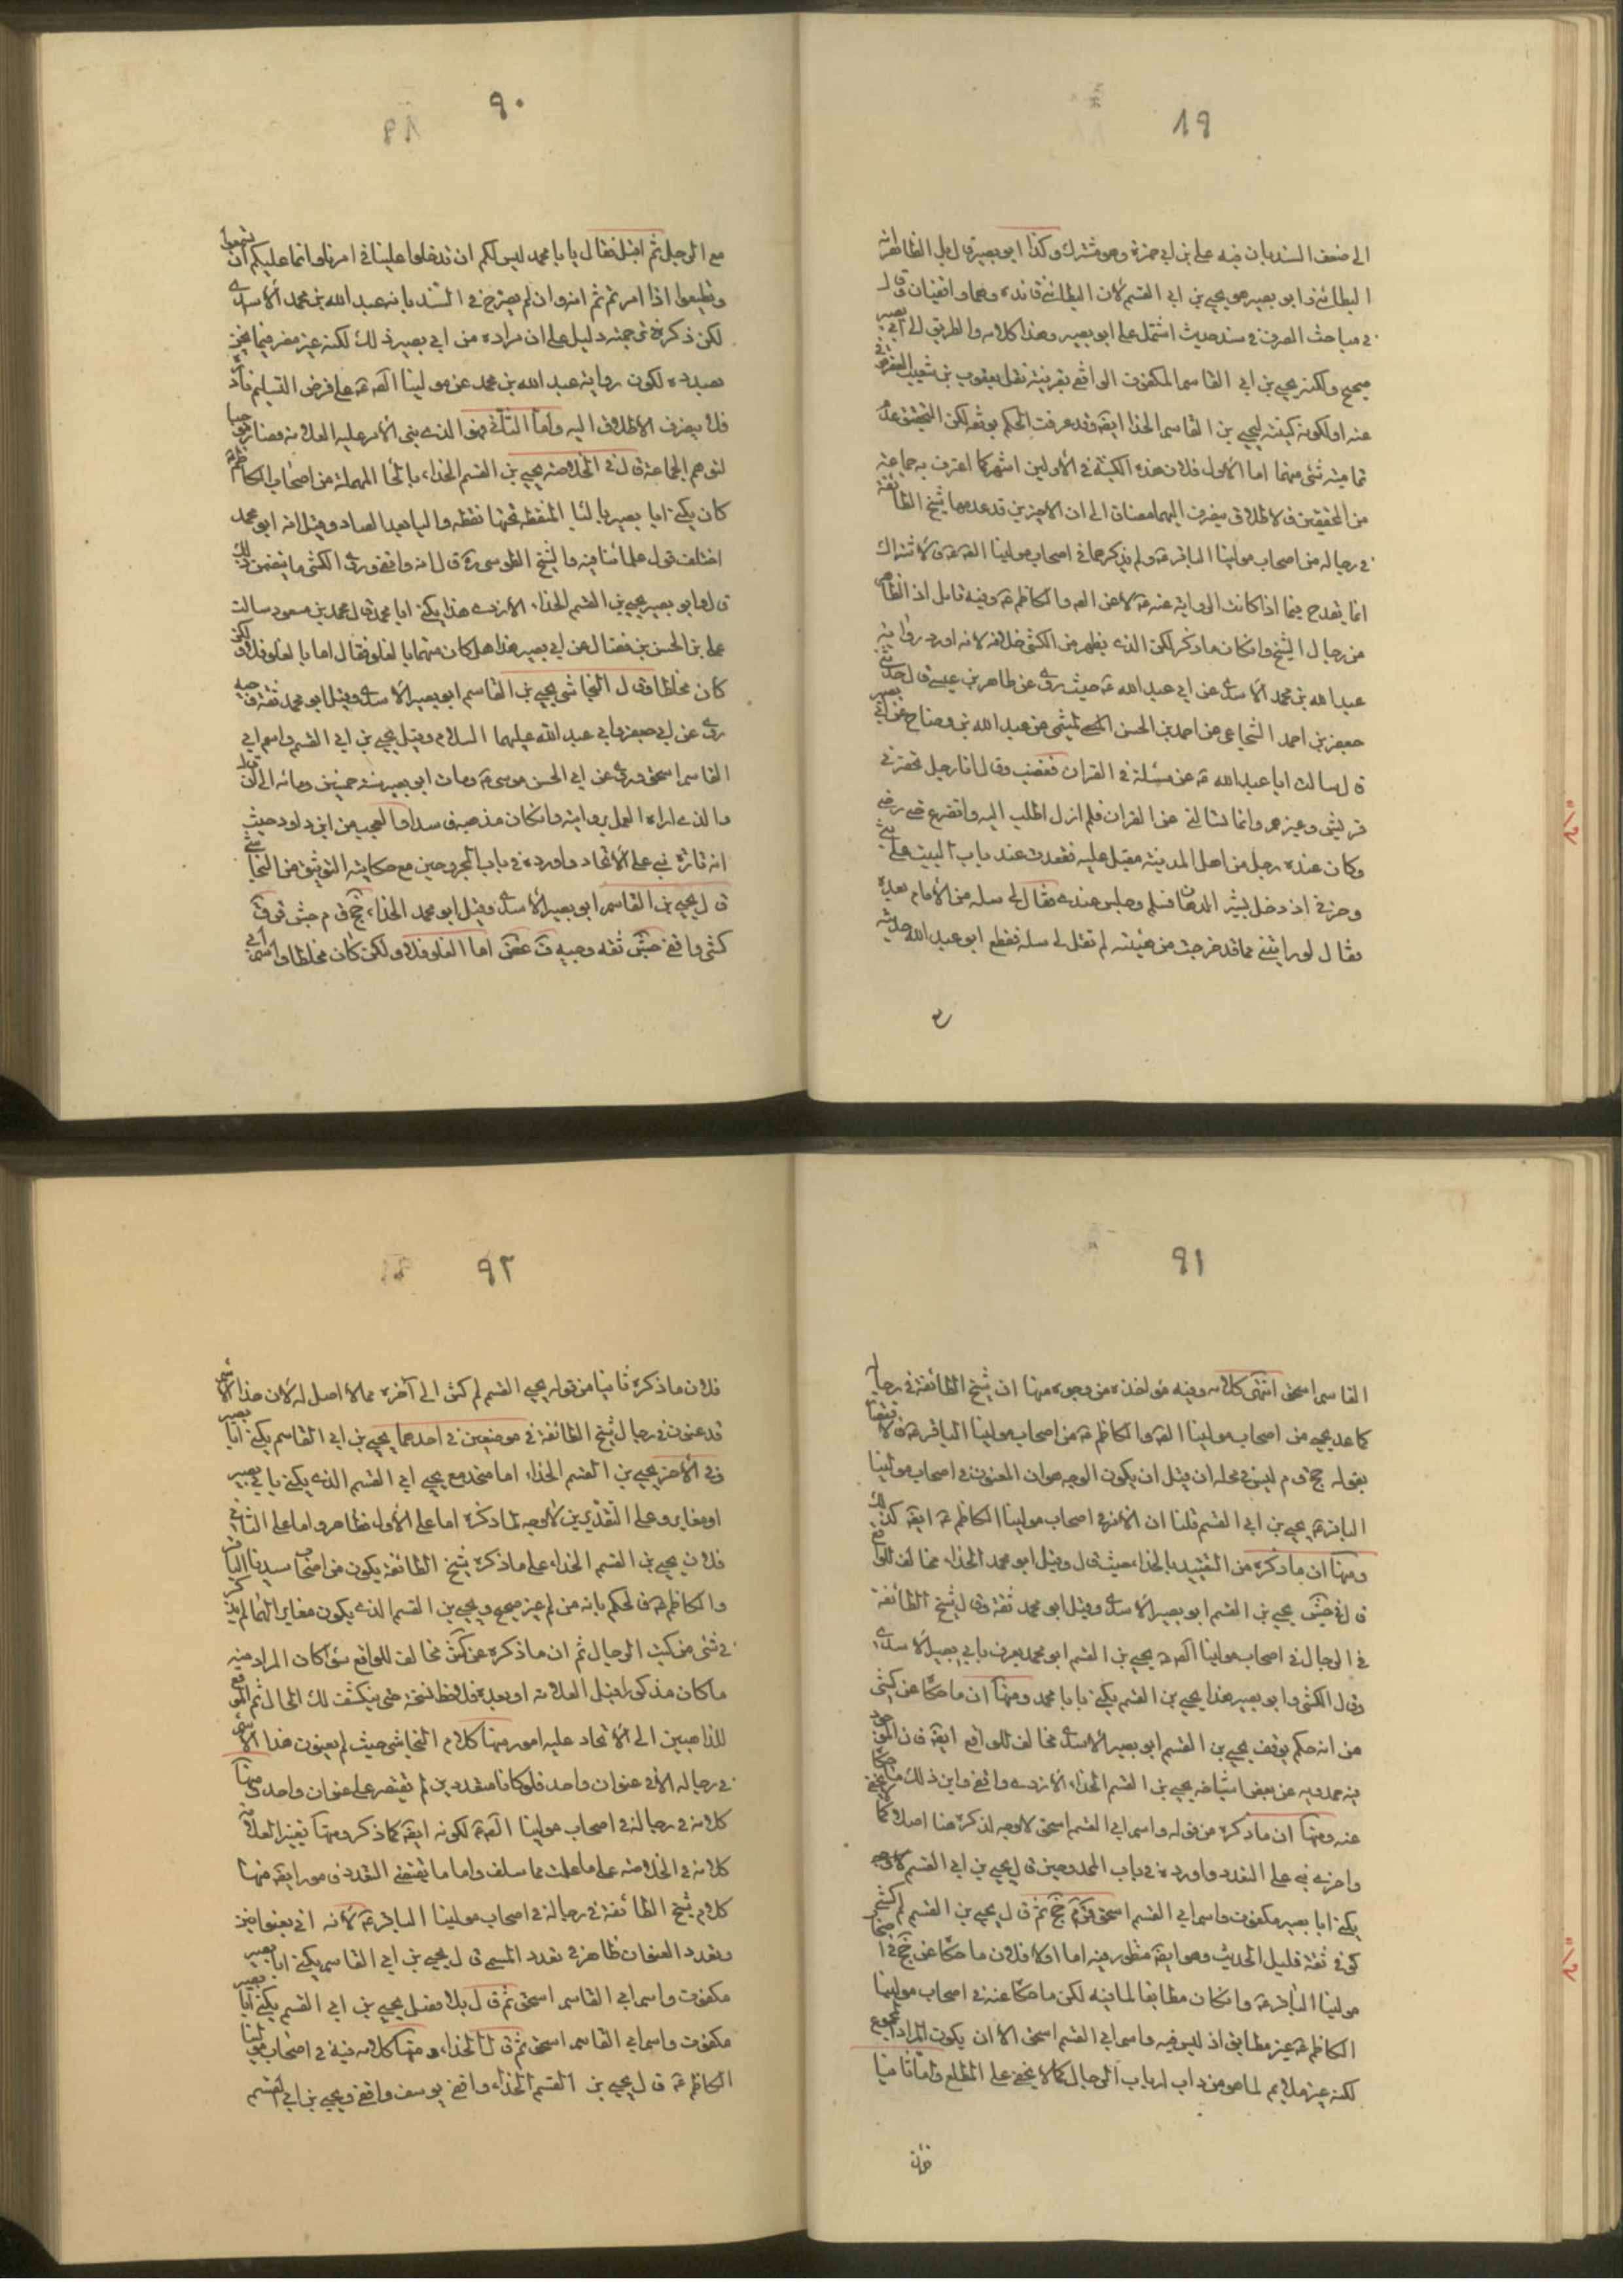 ٨٩
الى ضعف السند بان فيه علي بن ابي حمزة وهو مشترك وكذا ابو بصير قال بل الظاهر انه
البطائني وابو بصير هو يحيى بن ابي القسم لان البطائني قائده وهما واقفيان وقال
في مباحث الصرف في سند حديث اشتمل على ابو بصير وهذا كلامه والطريق الى ابي بصير
صحيح ولكنه يحيى بن ابي القاسم المكفوف الواقع بقرينة نقل يعقوب بن شعيب العقرقوفي
عنه او لكونه كنيته ليحيى بن القاسم الحذا ايضا وقد عرفت الحكم بوثقه لكن التحقيق عدم
تمامية شئ منهما اما الاول فلان هذه الكنية في الأولين اشهر كما اعترف به جماعة
من المحققين فالاطلاق ينصرف اليهما مضافا الى ان الاخيرين قد عدهما شيخ الطائفة
في رجاله من اصحاب مولينا الباقر ع ولم يذكرهما في اصحاب مولينا الصادق ع فالاشتراك
انما يقدح فيما اذا كانت الرواية عنه ع لا عن الصادق والكاظم ع وفيه تامل اذ الظاهر
من رجال الشيخ وان كان ما ذكر لكن الذي يظهر من الكشي خلافه لانه اورد رواية
عبد الله بن محمد الاسدي عن ابي عبد الله ع حيث روى عن طاهر بن عيسى قال حدثني
جعفر بن احمد الشجاعي عن احمد بن الحسن الميثمي عن عبد الله بن وضاح عن ابي بصير
قال سالت ابا عبد الله ع عن مسئلة في القران فغضب وقال انا رجل تحضرني
قريش وغيرهم وانما تسالني عن القران فلم ازل اطلب اليه واتضرع حتى رضي
وكان عنده رجل من اهل المدينة مقبل عليه فقعدت عند باب البيت على بثي
وحزني اذ دخل بشير الدهان فسلم وجلس عندي فقال لي سله من الامام بعده
فقال لو رايتني مما قد خرجت من هيئته لم تقل لي سله فقطع ابو عبد الله حديثه
مع
٩٠
مع الرجل ثم اقبل فقال يا با محمد ليس لكم ان تدخلوا علينا في امرنا وانما عليكم ان تسمعوا
وتطيعوا اذا امرتم ثم انه وان لم يصرح في السند بانه عبد الله بن محمد الاسدي
لكن ذكره في ترجمته دليل على ان مراده من ابي بصير ذلك لكنه غير مضر فيما نحن
بصدده لكون رواية عبد الله بن محمد عن مولينا الصادق ع على فرض التسليم نادرة
فلا ينصرف الاطلاق اليه واما الثاني فهو الذي بنى الامر عليه العلامة فصار موجبا
لتوهم الجماعة قال في الخلاصة يحيى بن القسم الحذاء بالحا المهملة من اصحاب الكاظم ع
كان يكنى ابا بصير بالبا المنقطة تحتها نقطه واليا بعد الصاد وقيل انه ابو محمد
اختلف قول علمائنا فيه والشيخ الطوسي ره قال انه واقفي وروى الكشي ما يتضمن ذلك
قال وابو بصير يحيى بن القسم الحذاء الازدي هذا يكنى ابا محمد قال محمد بن مسعود سالت
علي بن الحسن بن فضال عن ابي بصير هذا هل كان متهما بالغلو فقال اما بالغلو فلا ولكن
كان مخلطا وقال النجاشي يحيى بن القاسم ابو بصير الاسدي وقيل ابو محمد ثقة وجيه
روى عن ابي جعفر وابي عبد الله عليهما السلام وقيل يحيى بن ابي القسم واسم ابي
القاسم اسحق وروى عن ابي الحسن موسى ع ومات ابو بصير سنة خمسين ومائه الى ان قال
والذي اراه العمل بروايته وان كان مذهبه فاسدا والعجب من ابن داود حيث
انه تارة نبه على الاتحاد واورده في باب المجروحين مع حكاية التوثيق من النجاشي
قال يحيى بن القاسم ابو بصير الاسدي وقيل ابو محمد الحذاء جخ ق م جش قر ق
كش واقفي جش ثقه وجيه ق عض اما الغلو فلا ولكن كان مخلطا واسم ابي
٩١
القاسم اسحق انتهى كلامه وفيه مؤاخذه من وجوه منها ان شيخ الطائفة في رجاله
كما عد يحيى من اصحاب مولينا الصادق والكاظم ع من اصحاب مولينا الباقر ع فالاقتصار
بقوله جخ ق م ليس في محله ان قيل ان يكون الوجه هو ان المعنون في اصحاب مولينا
الباقر ع يحيى بن ابي القسم قلنا ان الامر في اصحاب مولينا الكاظم ع ايضا كذلك
ومنها ان ما ذكره من التقييد بالحذاء حيث قال وقيل ابو محمد الحذاء مخالف للواقع
قال في جش يحيى بن القسم ابو بصير الاسدي وقيل ابو محمد ثقة وقال شيخ الطائفة
في الرجال في اصحاب مولينا الصادق ع يحيى بن القسم ابو محمد يعرف بابي بصير الاسدي
وقال الكشي وابو بصير هذا يحيى بن القسم يكنى بابا محمد ومنها ان ما حكاه عن الكشي
من انه حكم بوقف يحيى بن القسم ابو بصير الاسدي مخالف للواقع ايضا فان الموجود
فيه حمدويه عن بعض اشياخه يحيى بن القسم الحذاء الازدي واقفي واين ذلك مما حكاه
عنه ومنها ان ما ذكره من قوله واسم ابي القسم اسحق لا وجه لذكره هنا اصلا كما لا يخفى
واخرى نبه على التعدد واورده في باب الممدوحين قال يحيى بن ابي القسم الاسدي
يكنى ابا بصير مكفوف واسم ابي القسم اسحق قر م جخ ثم قال يحيى بن القسم لم كش
كوفي ثقة قليل الحديث وهو ايضا منظور فيه اما اولا فلان ما حكاه عن جخ في اصحاب
مولينا الباقر ع وان كان مطابقا لما فيه لكن ما حكاه عنه في اصحاب مولينا
الكاظم ع غير مطابق اذ ليس فيه واسم ابي القسم اسحق الا ان يكون المراد المجموع
لكنه غير ملائم لما هو من داب ارباب الرجال كما لا يخفى على المطلع واما ثانيا
فلان
٩٢
فلان ما ذكره ثانيا من قوله يحيى القسم لم كش الى آخره مما لا اصل له لان هذا الاسم
قد عنون في رجال شيخ الطائفة في موضعين في احدهما يحيى بن ابي القاسم يكنى ابا بصير
وفي الاخر يحيى بن القسم الحذاء اما متحد مع يحيى ابي القسم الذي يكنى بابي بصير
او مغاير وعلى التقديرين لا وجه لما ذكره اما على الاول فظاهر واما على الثاني
فلان يحيى بن القسم الحذاء على ما ذكره شيخ الطائفة يكون من اصحاب سيدنا الباقر
والكاظم ع فالحكم بانه من لم غير صحيح ويحيى بن القسم الذي يكون مغايرا لهما لم يذكر
في شئ من كتب الرجال ثم ان ما ذكره عن كش مخالف للواقع سواء كان المراد منه
ما كان مذكورا قبل العلامة او بعده فلاحظ نسخة حتى ينكشف لك الحال ثم الموقع
للذاهبين الى الاتحاد عليه امور منها كلام النجاشي حيث لم يعنون هذا الاسم
في رجاله الا في عنوان واحد فلو كانا متعددين لم يقتصر على عنوان واحد ومنها
كلامه في رجاله في اصحاب مولينا الصادق ع لكونه ايضا كما ذكر ومنها تعبير العلامة
كلامه في الخلاصه على ما علمت مما سلف واما ما يقتضي التعدد فامور ايضا منها
كلام شيخ الطائفة في رجاله في اصحاب مولينا الباقر ع لانه اتى بعنوانين
وتعدد العنوان ظاهر في تعدد المسمى قال يحيى بن ابي القاسم يكنى ابا بصير
مكفوف واسم ابي القاسم اسحق ثم قال بلا فصل يحيى بن ابي القسم يكنى ابا بصير
مكفوف واسم ابي القاسم اسحق ثم قال الحذاء ومنها كلامه فيه في اصحاب مولينا
الكاظم ع قال يحيى بن القسم الحذاء واقفي يوسف واقفي ويحيى بن ابي القسم